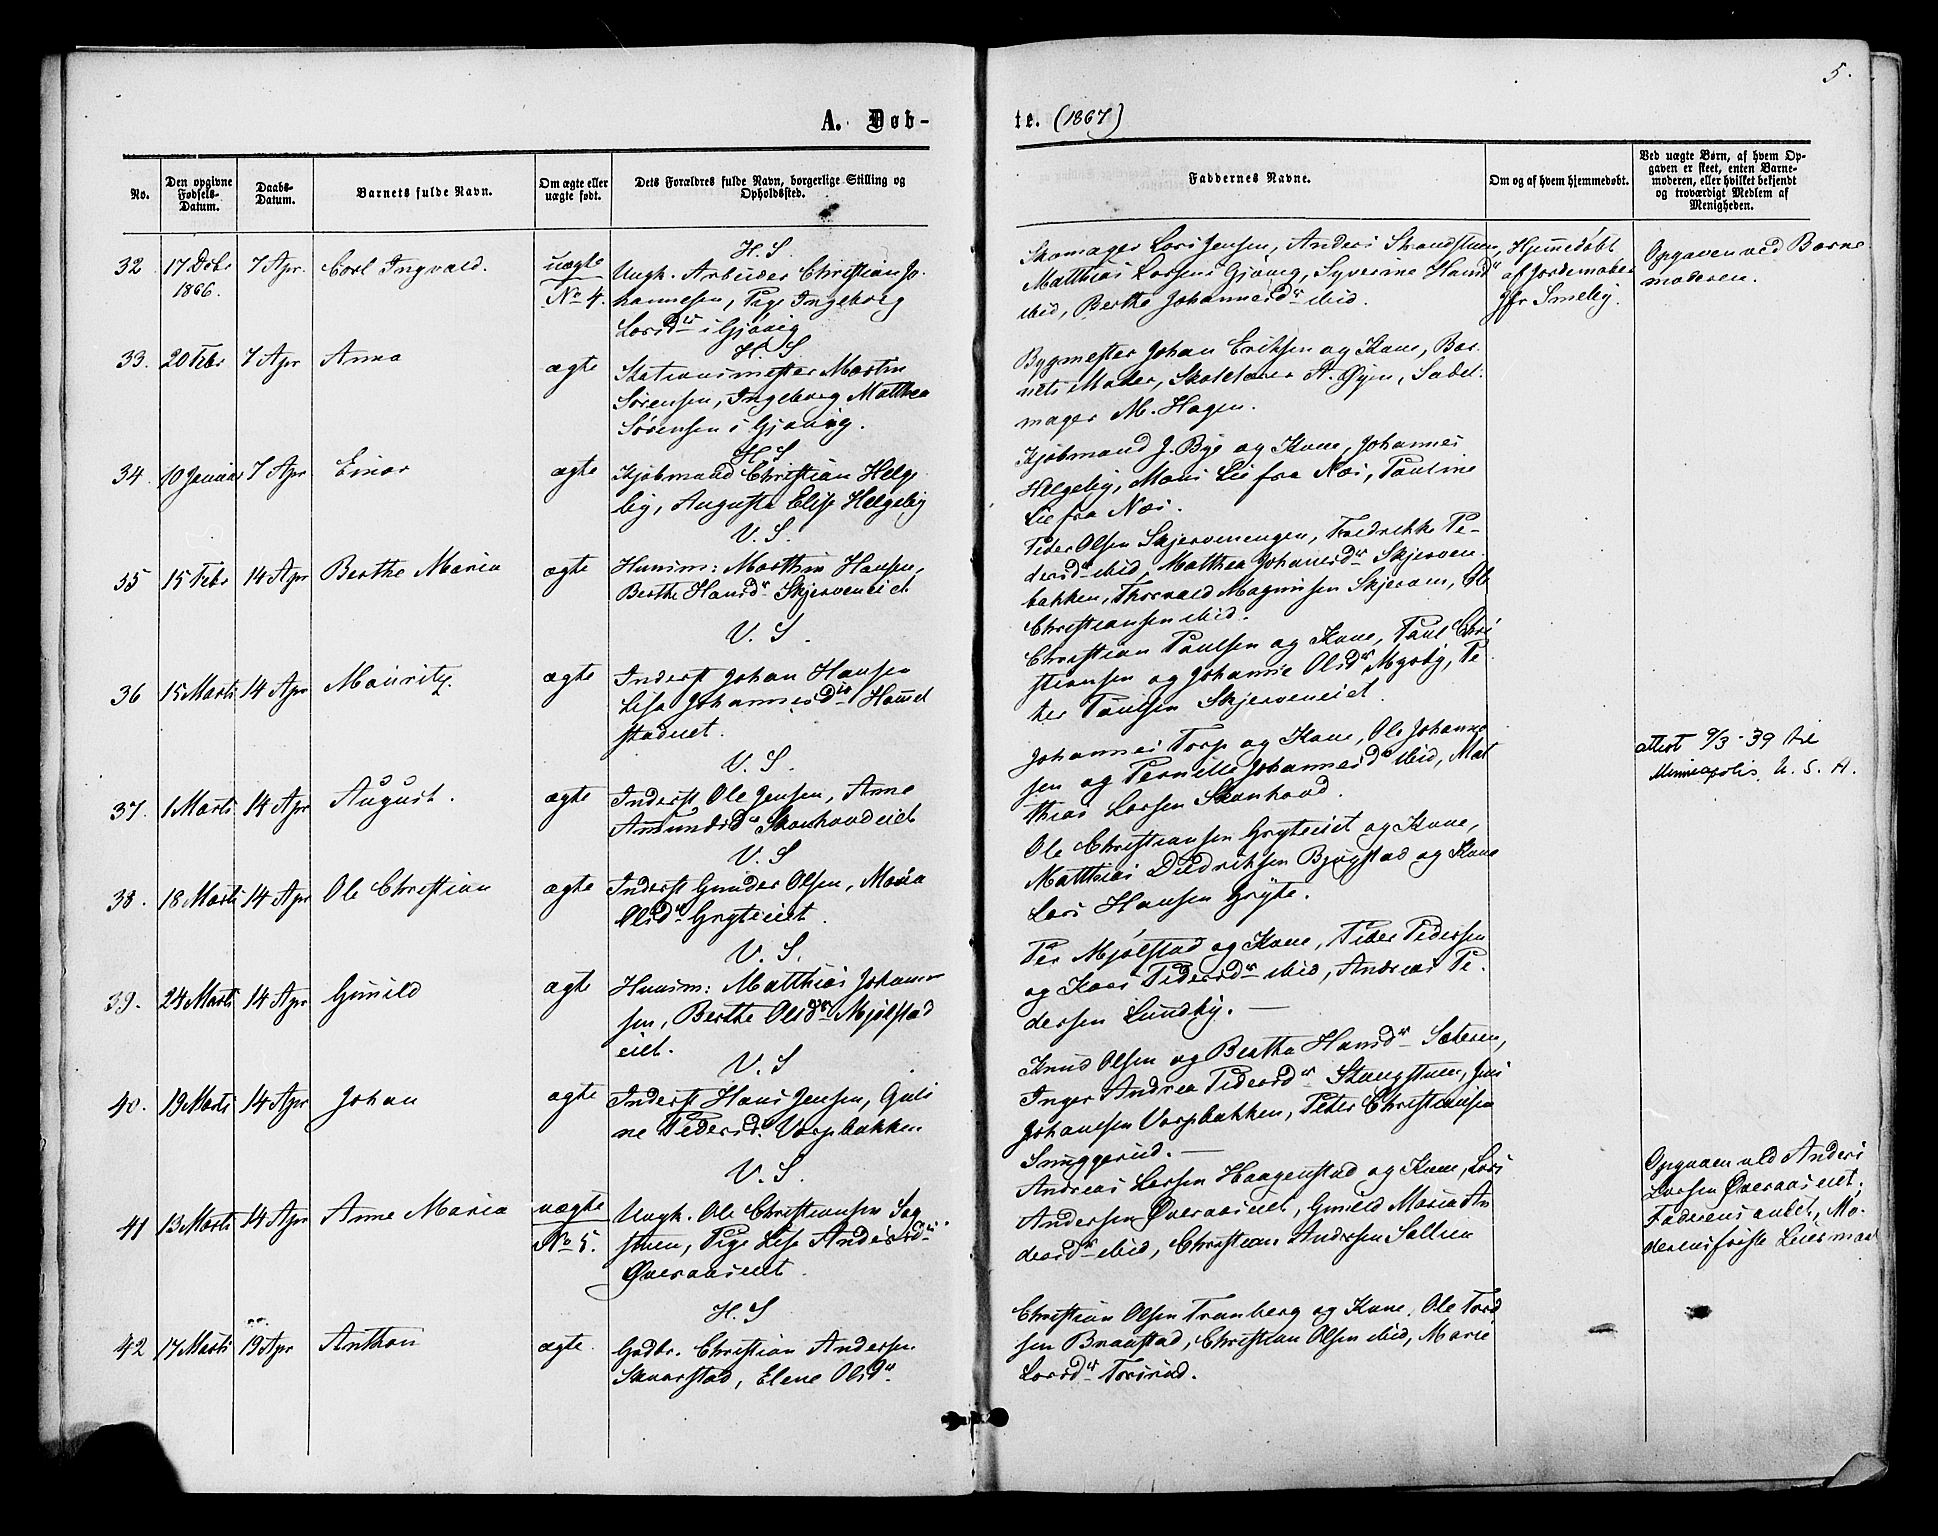 5.
A. Døb-
te. (1867)
No.
Den opgivne Fødsels-Datum.
Daabs-Datum.
Barnets fulde Navn.
Om ægte eller uægte født.
Dets Forældres fulde Navn, borgerlige Stilling og Opholdssted.
Faddernes Navne.
Om og af hvem hjemmedøbt.
Ved uægte Børn, af hvem Op-
gaven er skeet, enten Barne-
moderen, eller hvilket bekjendt
og troværdigt Medlem af
Menigheden.
H. S.
32 17 Debr 1866. 7 Apr. Carl Ingvald. uægte No 4.
Ungk. Arbeider Christian Jo-
hannesen, Pige Ingeborg
Larsdr i Gjøvig
Skomager Lars Jensen, Anders Strandstuen,
Matthias Larsens Gjøvig, Syverine Hansdr
ibid, Berthe Johannesdr ibid.
Hjemmedøbt
af Jordemoder
Jfr Smeby.
Opgaven ved Barne
moderen.
H. S
33. 20 Febr 7 Apr Anna ægte
Stationsmester Martin
Sørensen, Ingeborg Matthea
Sørensen i Gjøvig.
Bygmester Johan Eriksen og Kone, Bar-
nets Moder, Skolelærer A. Øyen, Sadel-
mager M. Hagen.
H. S.
34. 10 Januar 7 Apr Einar ægte
Kjøbmand Christian Helge
by, Augusta Elise Helgeby
Kjøbmand J. Bye og Kone, Johannes
Helgeby, Mons Lie fra Næs, Pauline
Lie fra Næs.
V. S.
35 15 Febr 14 Apr Berthe Maria ægte
Husm: Marthin Hansen,
Berthe Hansdr Skjerveneiet
Peder Olsen Skjervenengen, Fredrikke Pe-
dersdr ibid, Matthea Johansdr Skjerven-
bakken, Thorvald Magnusen Skjerven, Ole
Christiansen ibid.
V. S.
36 15 Marts 14 Apr Mauritz. ægte
Inderst Johan Hansen
Lisa Johannesdr
stadeiet.
Christian Paulsen og Kone, Paul Chri
stiansen og Johanne Olsdr Mysby, Pe
ter Paulsen Skjerveneiet.
V. S.
37. 1 Marts 14 Apr August. ægte
Inderst Ole Jensen, Anne
Amundsdr Skonhovdeiet
Johannes Torp og Kone, Ole Johanne
sen og Pernille Johannesdr ibid, Mat
thias Larsen Skonhovd.
attest 9/3-39 til
Minneapolis, U. S. A.
V. S
38. 18 Marts 14 Apr Ole Christian ægte
Inderst Gunder Olsen, Maria
Olsdr Gryteeiet.
Ole Christiansen Gryteeiet og Kone,
Matthias Diedriksen Bjøgstad og Kone
Lars Hansen Gryte.
V. S.
39. 24 Marts 14 Apr Gunild ægte
Husm: Matthias Johanne
sen, Berthe Olsdr Mjølstad
eiet.
Per Mjølstad og Kone, Peter Pedersen
og Kari Pedersdr ibid, Andreas Pe-
dersen Lundby. —
V. S
40. 19 Marts 14 Apr Johan ægte
Inderst Hans Jensen, Guli
ne Pedersd. Vorpbakken
Knud Olsen og Berthe Hansdr Sæteren,
Inger Andrea Pedersdr Stangstuen, Jens
Johansen Vorpbakken, Peter Christiansen
Snuggerud. —
V. S.
41 13 Marts 14 Apr Anne Maria uægte No 5.
Ungk. Ole Christiansen Sag
stuen, Pige Lise Andersdr
Øveraaseiet.
Andreas Larsen Haagenstad og Kone, Lars
Andersen Øveraaseiet, Gunild Maria An
dersdr ibid, Christian Andersen Sollien
Opgaven ved Anders
Larsen Øveraaseiet.
Faderens andet, Mo-
derens første Leiermaal
H. S
42 17 Marts 19 Apr Anthon ægte.
Gdbr. Christian Andersen
Skaarstad, Elene Olsdr
Christian Olsen Tranberg og Kone. Ole Tord
sen Braastad, Christian Olsen ibid, Marie
Larsdr Torsrud.